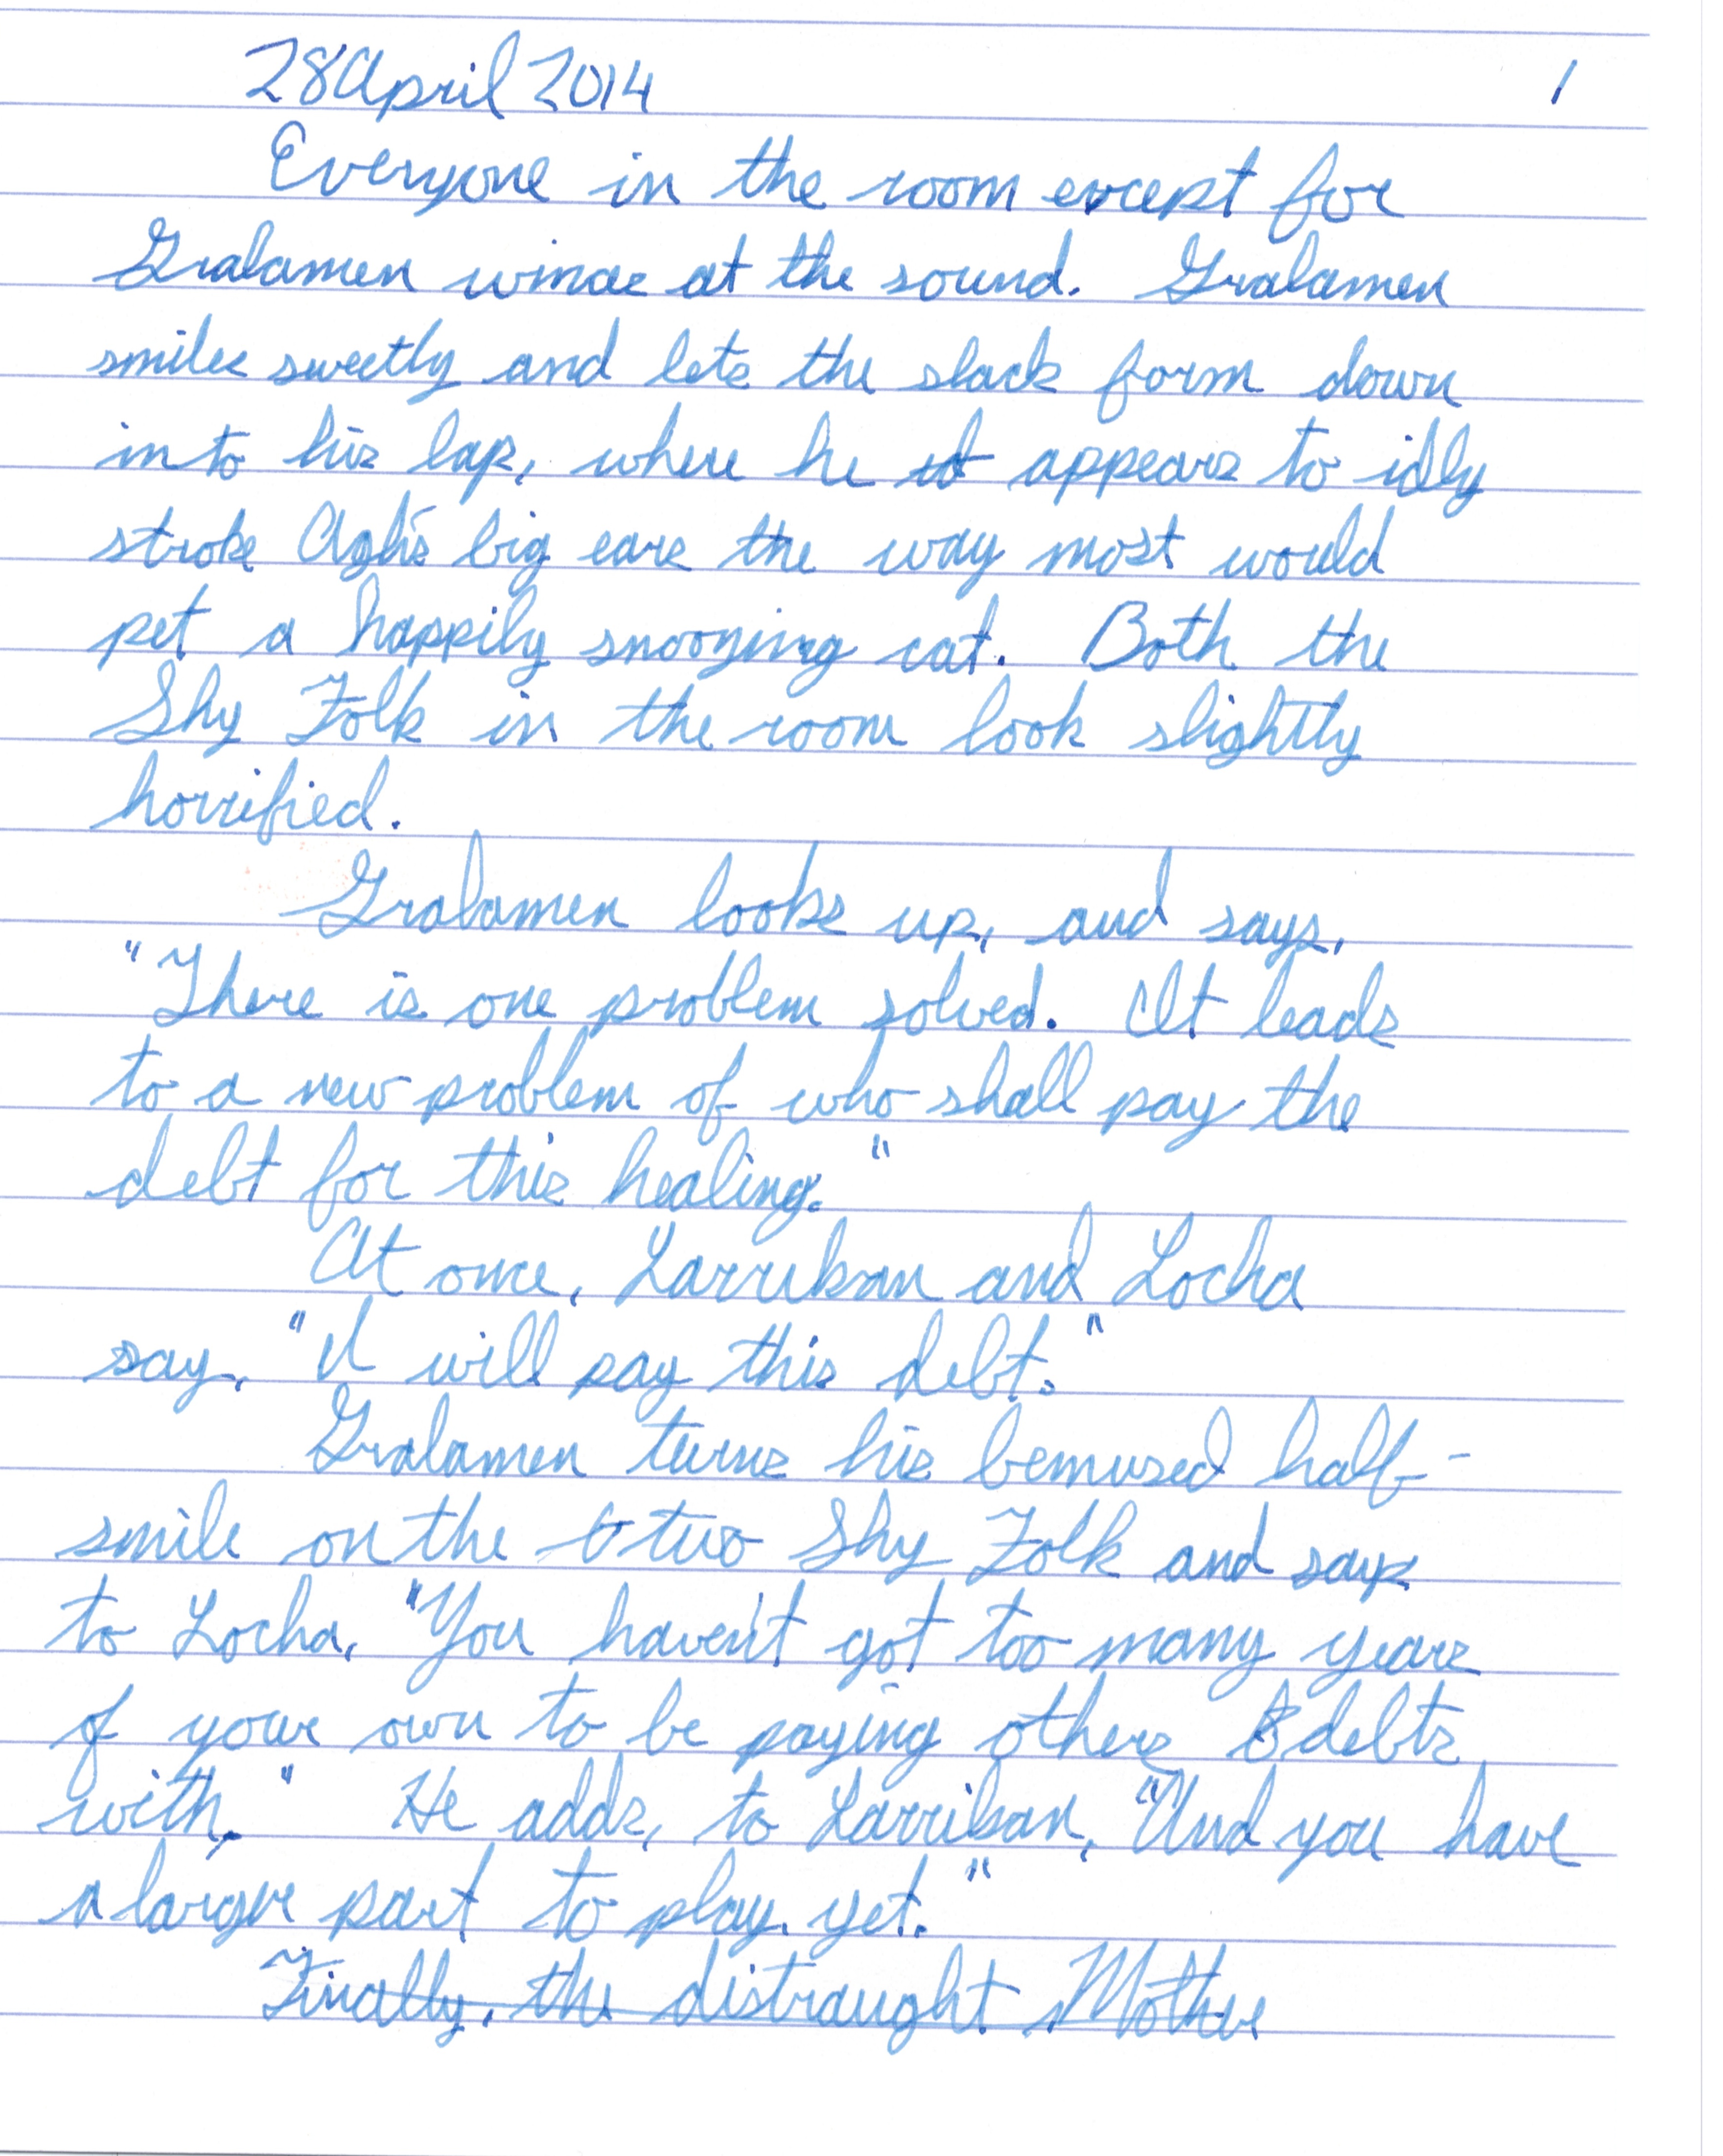 28 April 2014 1
Everyone in the room except for
Gralamen wince at the sound. Gralamen
smiles sweetly and lets the slack form down
into his lap, where he st appears to idly
stroke Agh's big ears the way most would
pet a happily snoozing cat. Both the
Shy Folk in the room look slightly
horrified.
Gralamen looks up, and says,
"There is one problem solved. It leads
to a new problem of who shall pay the
debt for this healing."
At once, Larrikan and Locha
say, "I will pay this debt."
Gralamen turns his bemused half-
smile on the two Shy Folk and says
to Locha, "You haven't got too many years
of your own to be paying others debts
with." He adds, to Larrikan, "And you have
a larger part to play, yet."
Finally, the distraught Mother